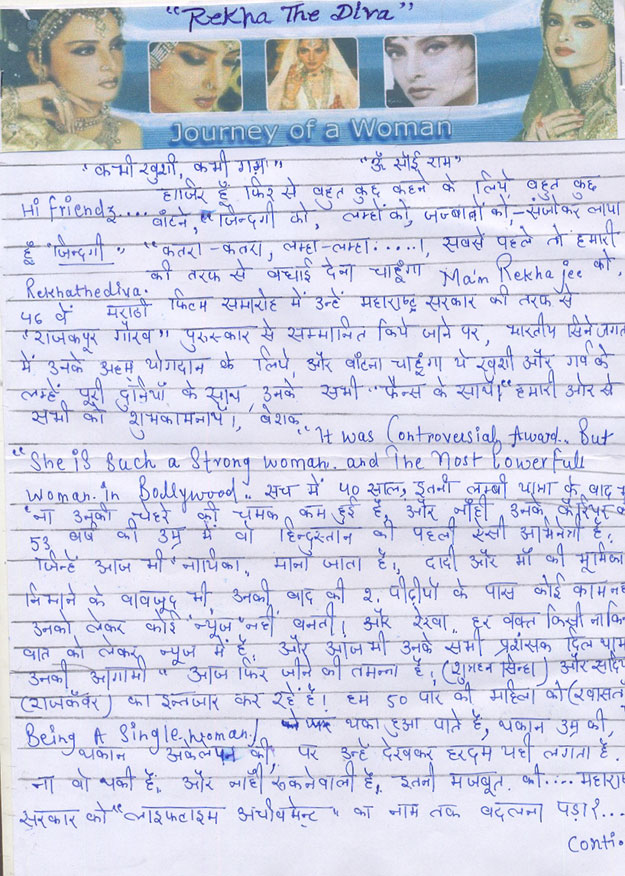 "Rekha The Diva"
Journey of a Woman
"कभी खुशी, कभी गम" "ॐ साँई राम"
हाजिर हूँ फिर से बहुत कुछ कहने के लिये बहुत कुछ
Hi friendz.... बाँटने, "जिन्दगी को, लम्हों को, जज्बातों को,-संजोकर लाया
हूँ "जिन्दगी" "कतरा-कतरा, लम्हा-लम्हा.....।, सबसे पहले तो हमारी
की तरफ से बधाई देना चाहूंगा Ma'm Rekha jee को,
Rekhathediva.
46 वें मराठी फिल्म समारोह में उन्हें महाराष्ट्र सरकार की तरफ से
"राजकपूर गौरव" पुरुस्कार से सम्मानित किये जाने पर, भारतीय सिने जगत
में उनके अहम योगदान के लिये, और बाँटना चाहूंगा ये खुशी और गर्व के
लम्हें पूरी दुनियाँ के साथ, उनके सभी "फैन्स के साथ।" हमारी ओर से
सभी को शुभकामनायें।, बेशक
"It was Controversial Award.. But
"She is Such a Strong woman. and The Most Powerfull
woman. in Bollywood.. सच में 40 साल, इतनी लम्बी यात्रा के बाद
"ना उनके चेहरे की चमक कम हुई है, और नाँही उनके कैरियर
53 वर्ष की उम्र में वो हिन्दुस्तान की पहली ऐसी अभिनेत्री है,
जिन्हें आज भी 'नायिका.. माना जाता है।, दादी और माँ की भूमिका
निभाने के बावजूद भी, उनकी बाद की 2. पीढ़ीयों के पास कोई काम
उनको लेकर कोई 'न्यूज' नहीं बनती। और रेखा.. हर वक्त किसी ना कि
बात को लेकर न्यूज में है, और आज भी उनके सभी प्रशंसक दिल थाम
उनकी आगामी "आज फिर जीने की तमन्ना है, (शुभहन सिन्हा) और
(राजकँवर) का इन्तजार कर रहें है। हम 50 पार की महिला को
Being A Single woman! थका हुआ पाते है, थकान उम्र की,
थकान अकेलपन की, पर उन्हें देखकर हरदम यही लगता है.
ना वो थकी है, और नाँही रुकनेवाली है, इतनी मजबूत की....
सरकार को "लाइफटाइम अचीवमेन्ट" का नाम तक बदलना पड़ा?...
Conti.